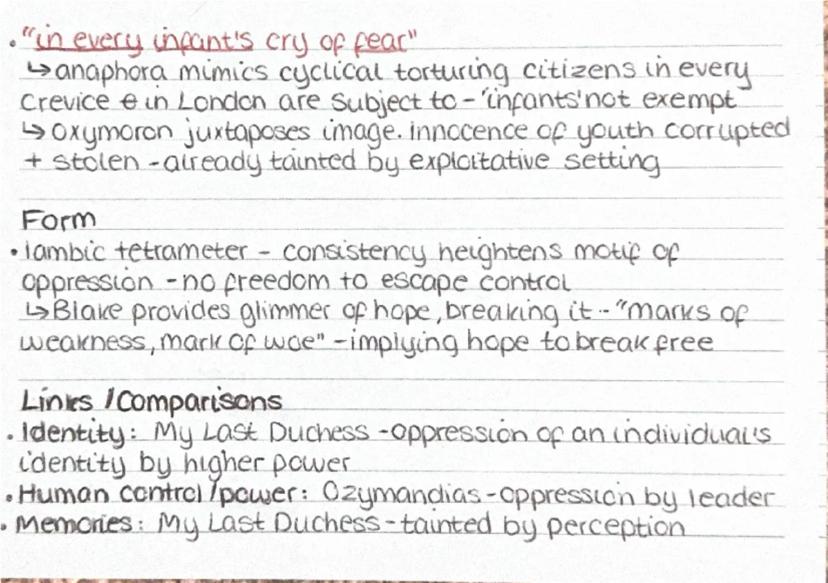 • "in every infant's cry of fear"
↳ anaphora mimics cyclical torturing citizens in every
crevice in London are subject to - 'infants' not exempt
↳ oxymoron juxtaposes image. innocence of youth corrupted
+ stolen - already tainted by exploitative setting
Form
• Iambic tetrameter - consistency heightens motif of
oppression - no freedom to escape control
↳ Blake provides glimmer of hope, breaking it - "marks of
weakness, mark of woe" - implying hope to break free
Links / Comparisons
• Identity: My Last Duchess - oppression of an individual's
identity by higher power
• Human control / power: Ozymandias - oppression by leader
• Memories: My Last Duchess - tainted by perception